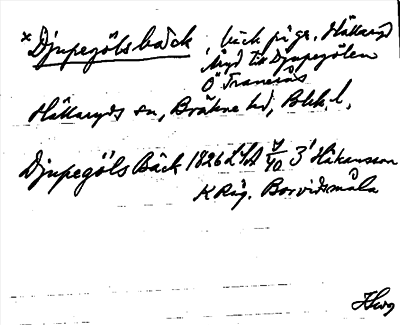 × Djupegölsbäck, bäck på gr. Hällaryd
Åryd till Djupegölen
Ö Tranemås
Hällaryds sn, Bräkne hd, Blek. l.
Djupegöls Bäck 1826 LSA 3¹ Håkansson
K Råg. Borvidsmåla